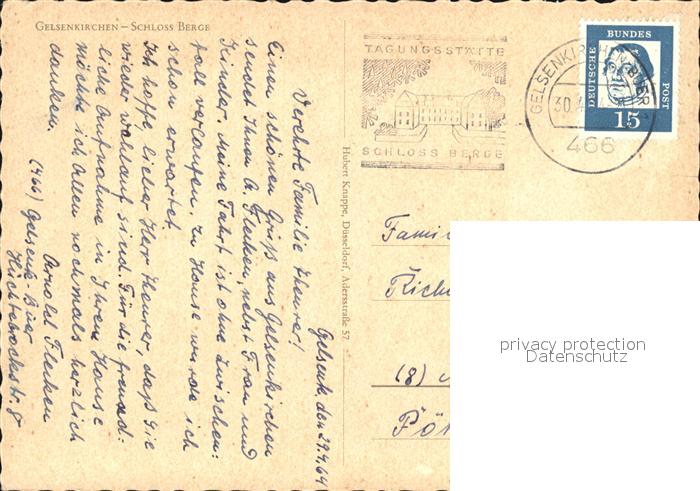 GELSENKIRCHEN – SCHLOSS BERGE
Gelsenk., den 29.4.64
Verehrte Familie Heurer!
Einen schönen Gruß aus Gelsenkirchen
sendet Ihnen A. Flecken, nebst Frau und
Kinder. Meine Fahrt ist ohne Zwischen:
fall verlaufen. Zu Hause wurde ich
schon erwartet.
Ich hoffe lieber Herr Heurer, daß Sie
wieder wohlauf sind. Für die freund:
liche Aufnahme in Ihrem Hause
möchte ich Allen nochmals herzlich
danken.
Arnold Flecken
(466) Gelsenk.-Buer
Hubert Knappe, Düsseldorf, Adersstraße 57
TAGUNGSSTÄTTE
SCHLOSS BERGE
GELSENKIRCHEN-BUER
30.4
466
DEUTSCHE BUNDES POST
15
Famil
Richa
(8)
Pö
privacy protection
Datenschutz